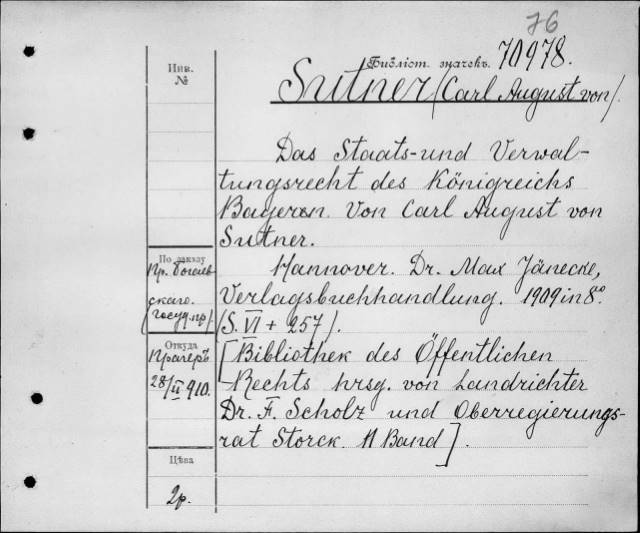 76
Библіот. значекъ. 70978.
Sutner (Carl August von).
Инв.
№
Das Staats- und Verwal-
tungsrecht des Königreichs
Bayern. Von Carl August von
Sutner.
Hannover. Dr. Max Jänecke,
Verlagsbuchhandlung. 1909 in 8º
(S. VI + 257).
[Bibliothek des Öffentlichen
Rechts hrsg. von Landrichter
Dr. F. Scholz und Oberregierungs-
rat Storck. 11 Band].
По заказу
Пр.
скаго.
(Госуд. пр.)
Откуда
Прагеръ
28/II 910.
Цѣна
2р.